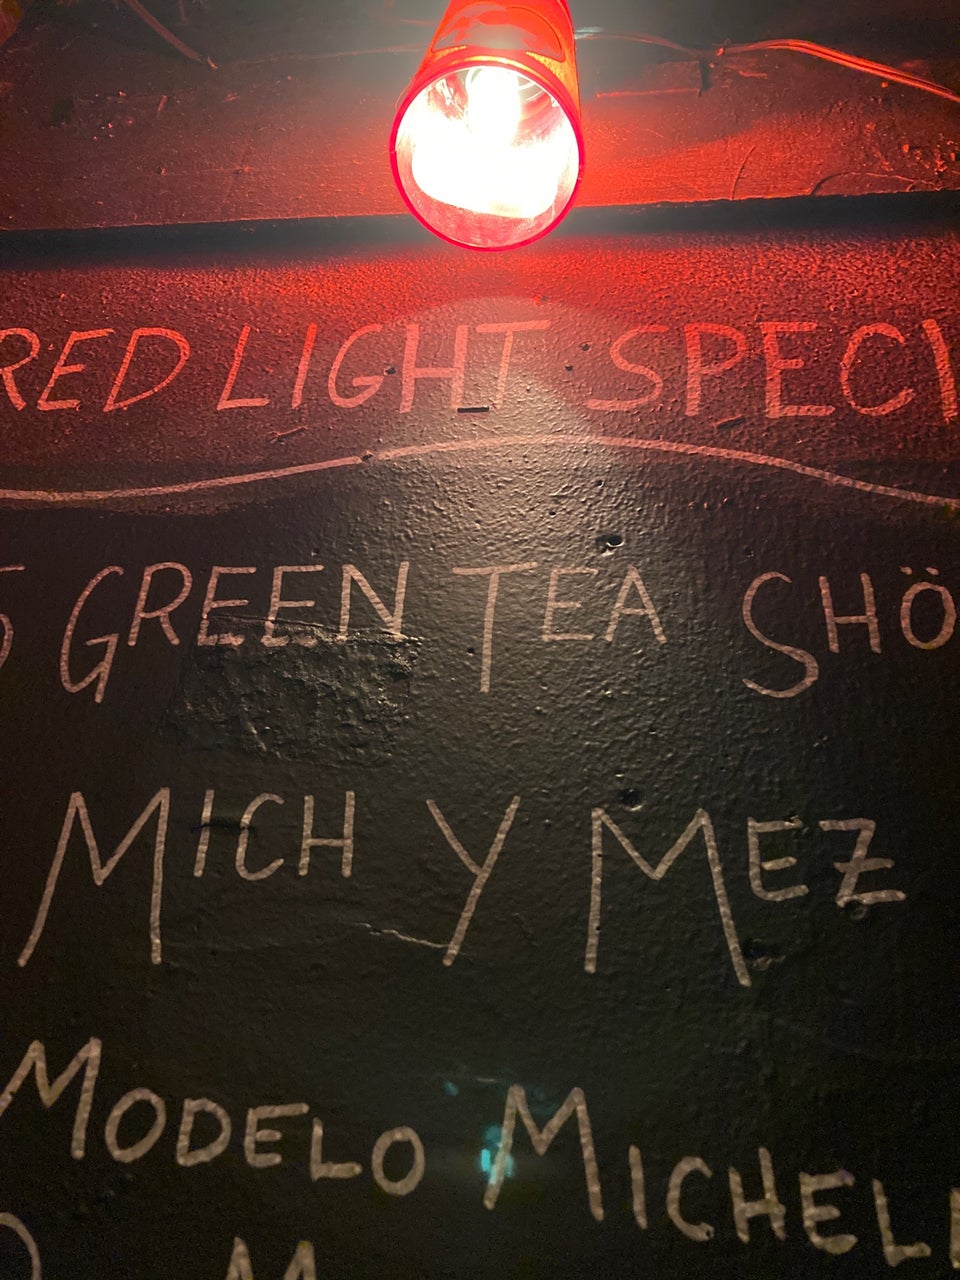 RED LIGHT SPECI
5 GREEN TEA SHÖ
MICH Y MEZ
MODELO MICHEL